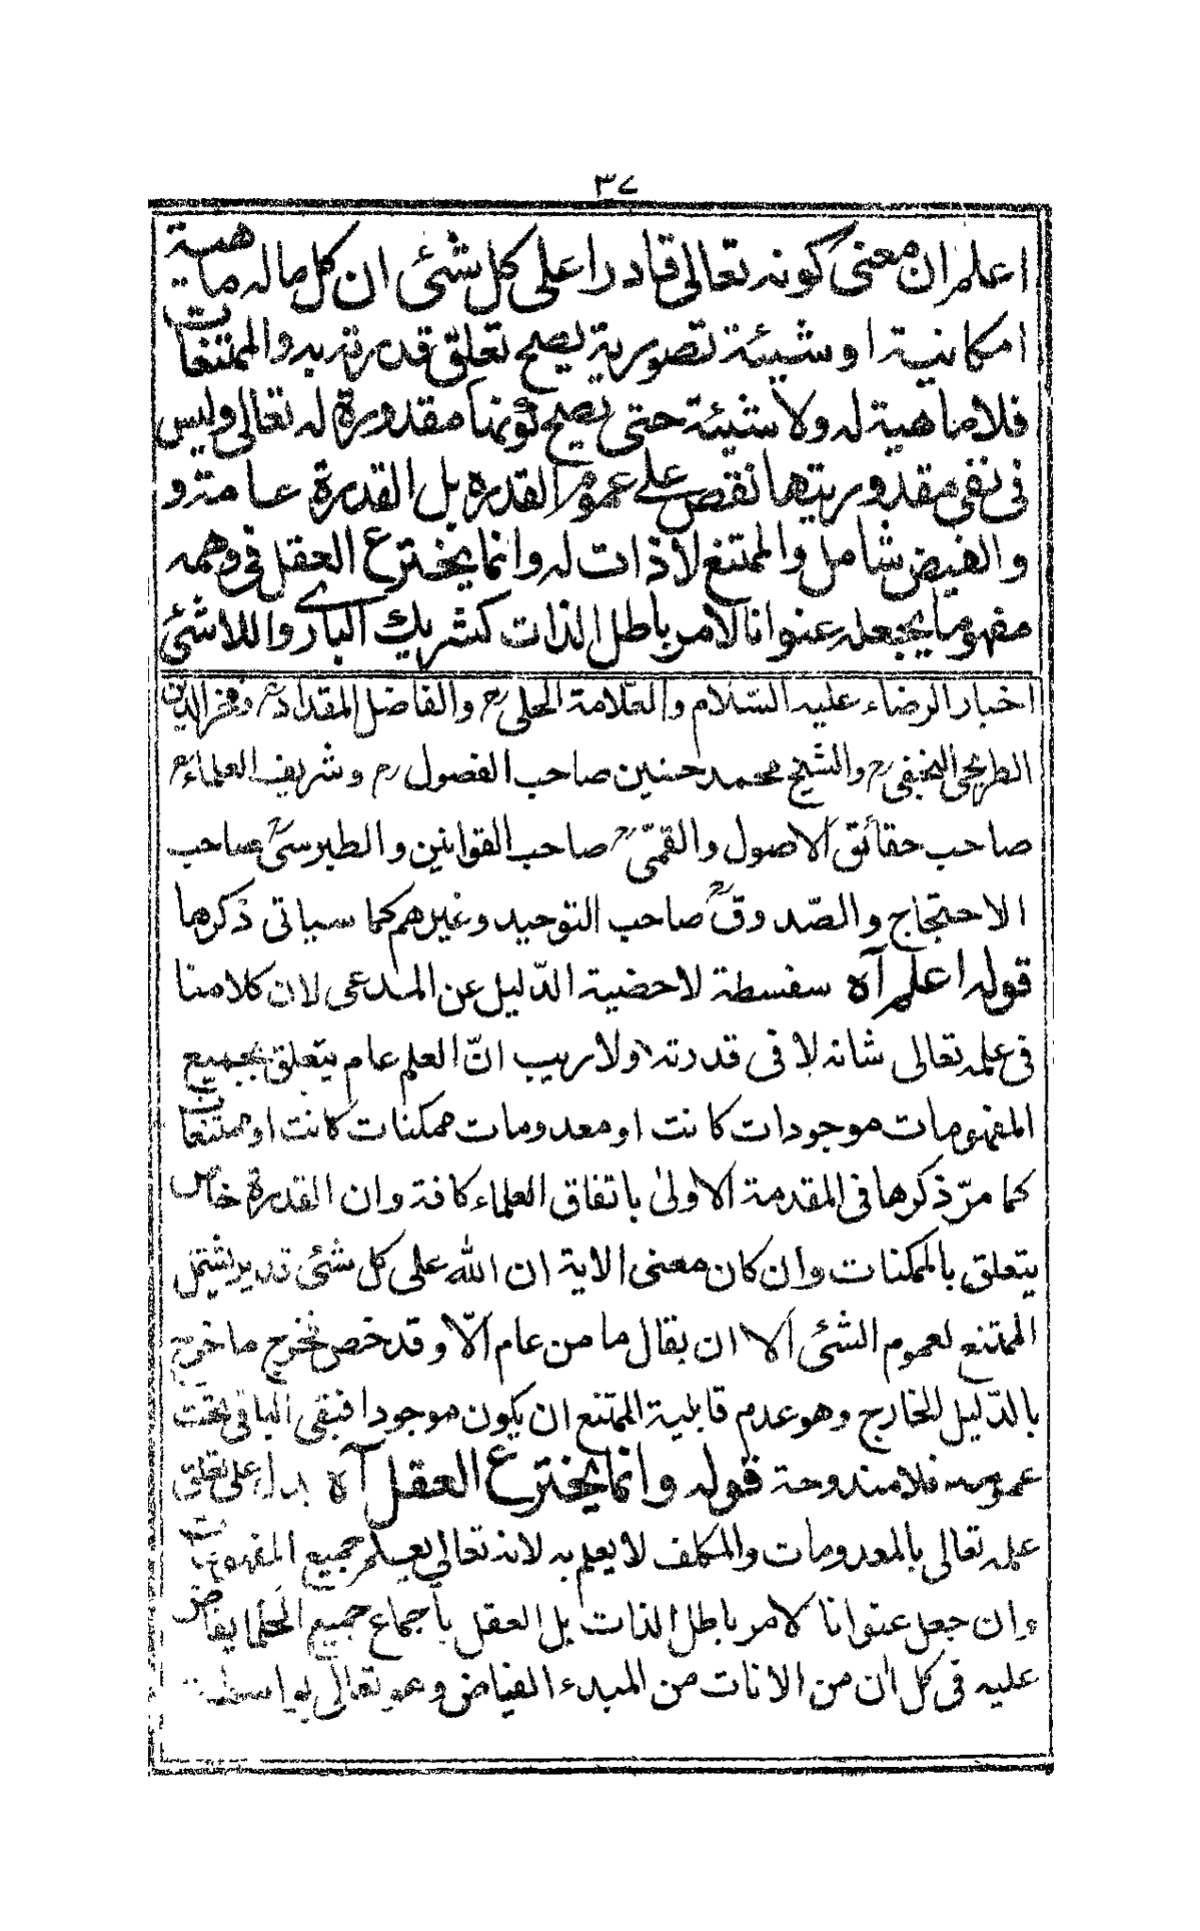 ٣٧
اعلم ان معنى كونه تعالى قادرا على كل شئ ان كل ماله ماهية
امكانية او شيئة تصورية يصح تعلق قدرته به والممتنعات
فلا ماهية له ولا شيئة حتى يصح كونها مقدورة له تعالى وليس
فى نفى مقدوريتها نقص على عموم القدره بل القدرة عامة و
والفيض شامل والممتنع لا ذات له وانما يخترع العقل فى وهمه
مفهوما يجعله عنوانا لامر باطل الذات كشريك البارى واللاشئ
اخبار الرضاء عليه السّلام والعّلامة الحلى رح والفاضل المقداد رح وفخر الدين
الطريحى النجفى رح والشيخ محمد حسنين صاحب الفصول رح وشريف العلماء رح
صاحب حقائق الاصول والقمّى رح صاحب القوانين والطبرسى رح صاحب
الاحتجاج والصّدوق رح صاحب التوحيد وغيرهم كما سياتى ذكرها
قوله اعلم آه سفسطة لاحضية الدّليل عن المدعى لان كلامنا
فى علمه تعالى شانه لا فى قدرته ولا ريب انّ العلم عام يتعلق بجميع
المفهومات موجودات كانت او معدومات ممكنات كانت او ممتنعات
كما مرّ ذكرها فى المقدمة الاولى باتفاق العلماء كافة وان القدرة خاص
يتعلق بالممكنات وان كان معنى الاية ان الله على كل شئ قدير يشتمل
الممتنع لعموم الشئ الا ان يقال ما من عام الّا وقد خص فخرج ما خرج
بالدّليل الخارج وهو عدم قابلية الممتنع ان يكون موجودا فبقى الباقى تحت
عمومه فلا مندوحة قوله وانما يخترع العقل آه يدل على تعلق
علمه تعالى بالمعدومات والمكلف لا يعلم به لانه تعالى يعلم جميع المفهومات
وان جعل عنوانا لامر باطل الذات بل العقل باجماع جميع الحكما يفاض
عليه فى كل ان من الانات من المبدء الفياض وهو تعالى بواسطة